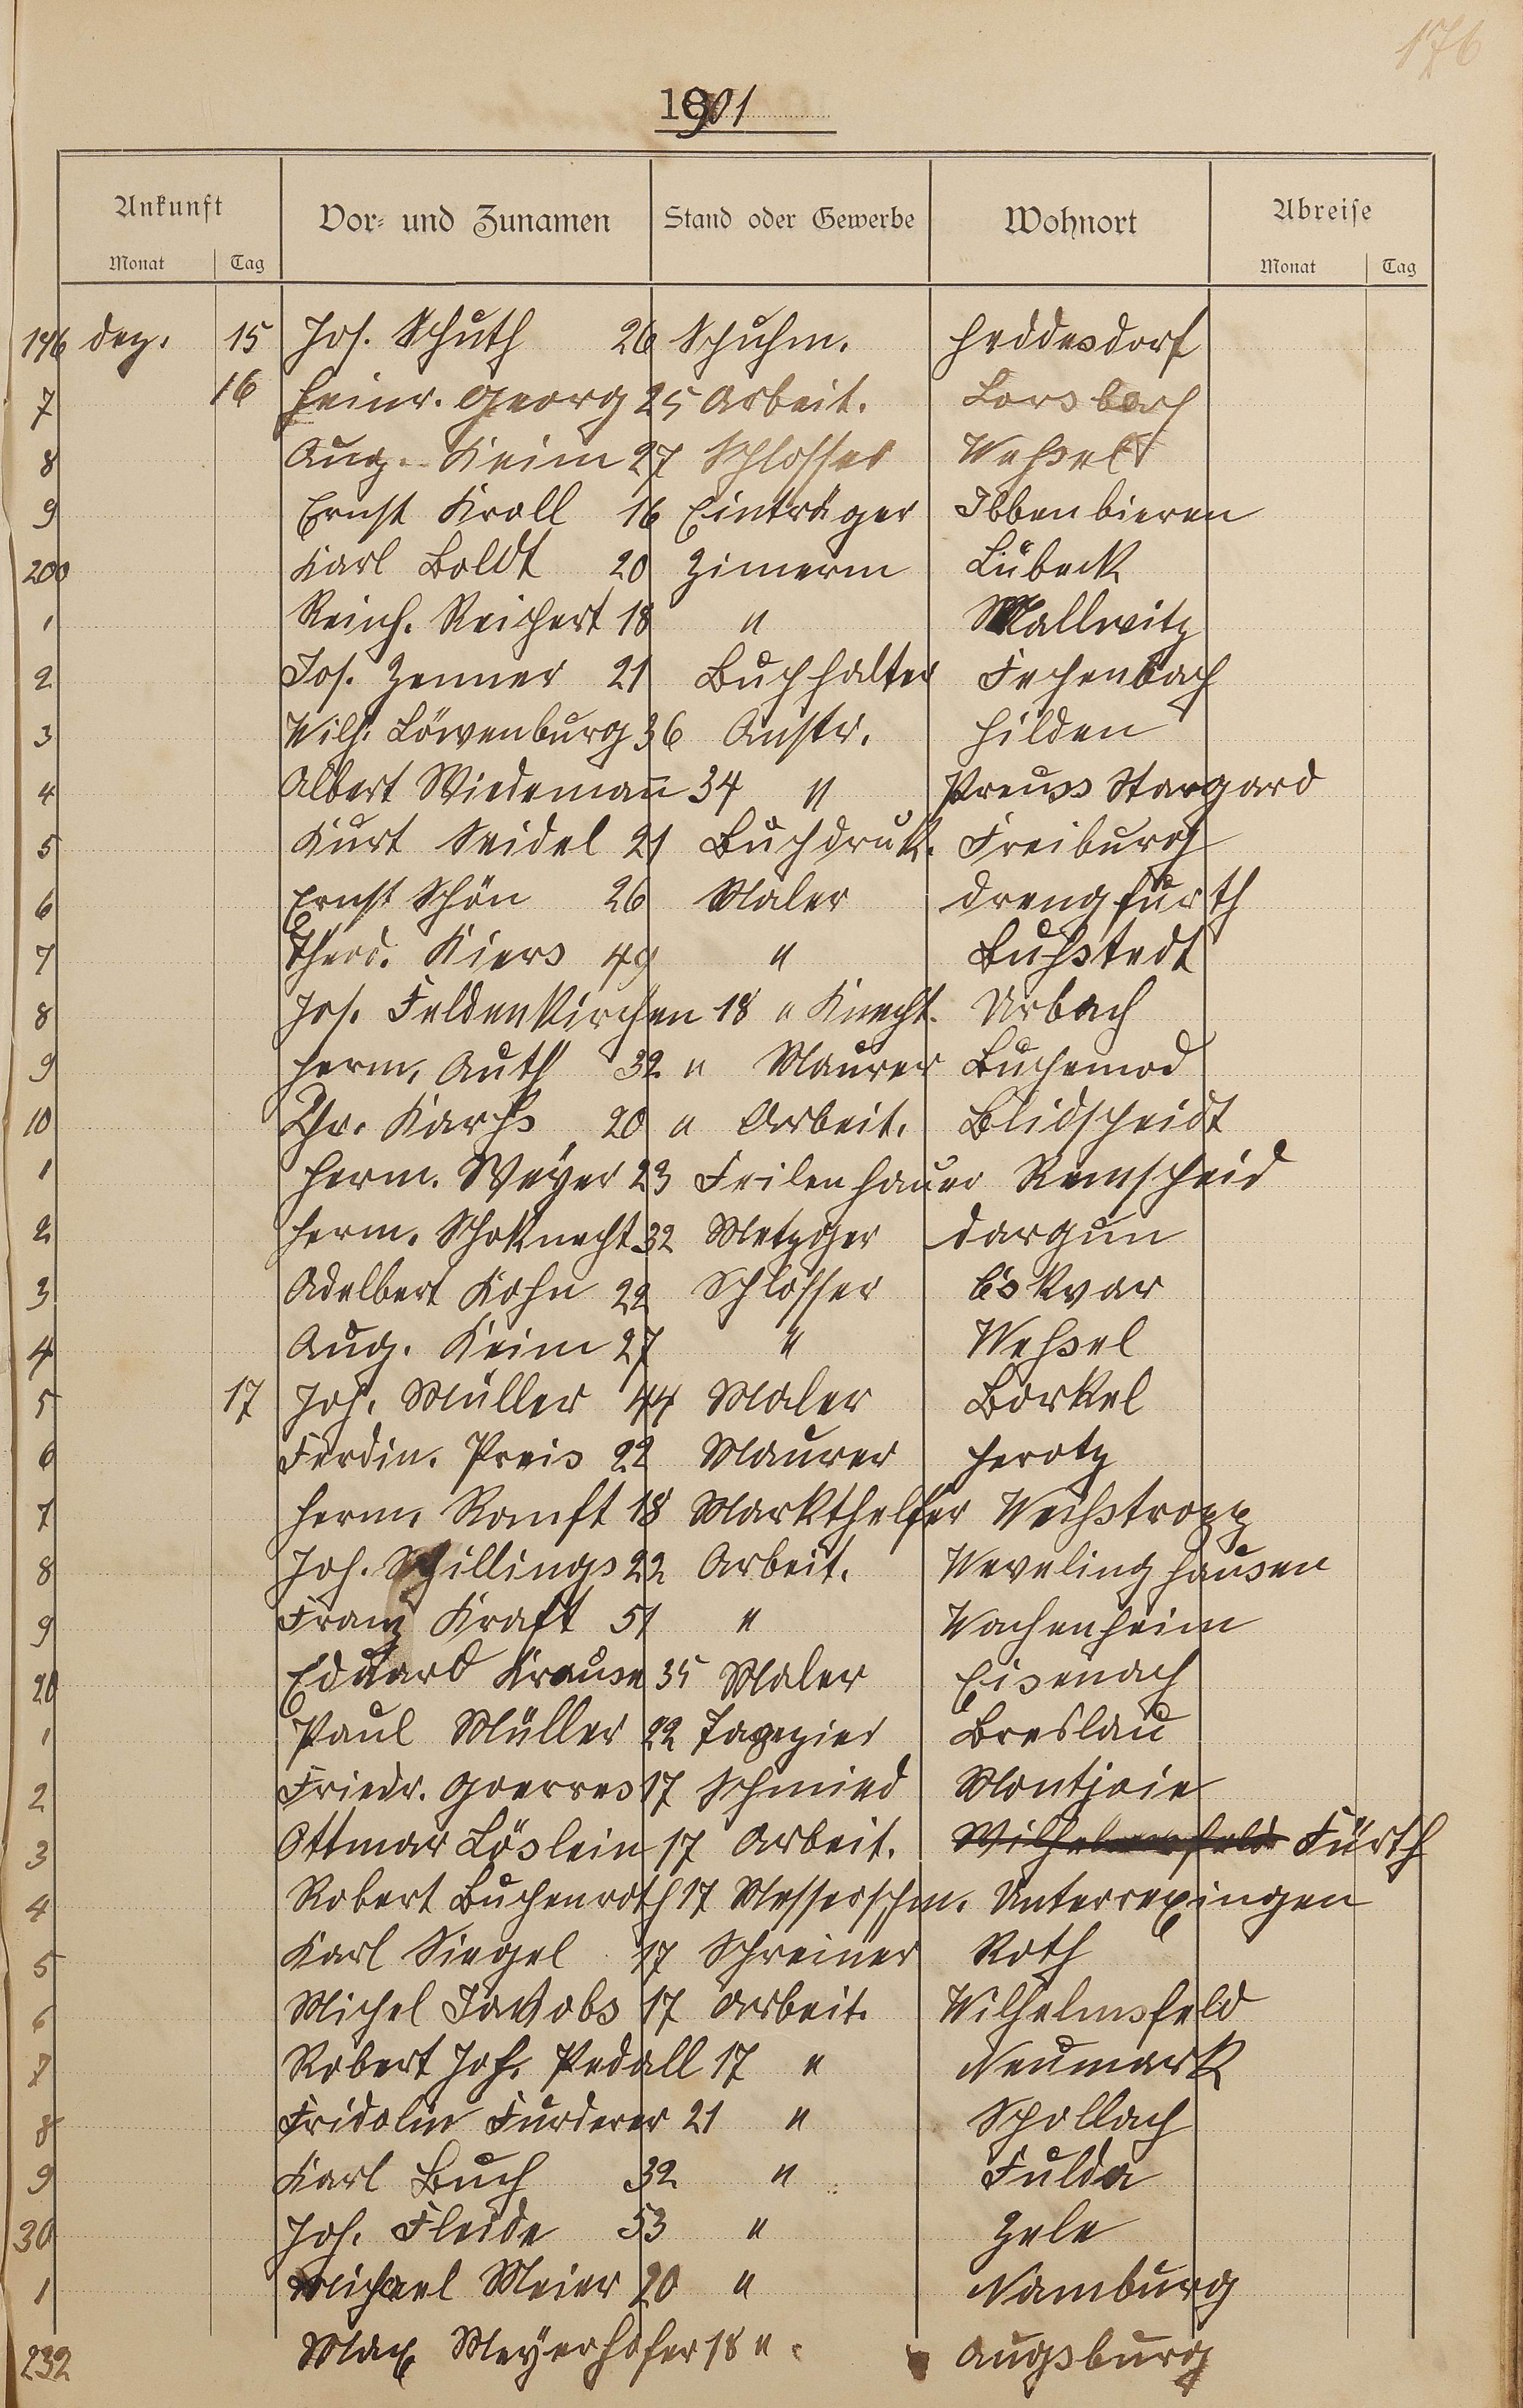 176
1901
Ankunft Vor- und Zunamen Stand oder Gewerbe Wohnort Abreise
Monat Tag Monat Tag
196 dez. 15 Jos. Schuth 26 Schuhm. Heddesdorf
7 16 Heinr. Georg 25 Arbeit. Lorsbach
8 Aug. Keim 27 Schlosser Wehsel
9 Ernst Kroll 16 Einträger Ibbenbieren
200 Karl Boldt 20 Zimerm Lübeck
1 Reinh. Reichert 18 " Mallwitz
2 Jos. Zenner 21 Buchhalter Fechenbach
3 Wilh. Löwenburg 36 Anstr. Hilden
4 Albert Wiedemañ 34 " Preuss Stargard
5 Kurt Seidel 21 Buchdruk. Freiburg
6 Ernst Schön 26 Maler Drengfurth
7 Theod. Kiers 49 " Buhstedt
8 Jos. Feldenkirchen 18 " Knecht. Urbach
9 Herm. Auth 32 " Maurer
10 Chr. Karchs 20 " Arbeit. Blidscheidt
1 Herm. Weyer 23 Feilenhauer Remscheid
2 Herm. Schoknecht 32 Metzger Dargun
3 Adelbert Kohn 22 Schlosser
4 Aug. Keim 27 " Wehsel
5 17 Joh. Müller 44 Maler Borkel
6 Ferdin. Preis 22 Maurer Herotz
7 Herm. Ranft 18 Markthelfer Weihstropp
8 Joh. Schillings 22 Arbeit. Wevelinghausen
9 Franz Kraft 51 " Wachenheim
20 Eduard Krause 35 Maler Eisenach
1 Paul Müller 22 Tapezier Breslau
2 Friedr. Goerres 17 Schmied Montjoie
3 Ottmar Löslein 17 Arbeit. Wilhelmsfeld Fürth
4 Robert Buchenroth 17 Messerschm. Unterrexingen
5 Karl Siegel 17 Schreiner Roth
6 Michel Jakobs 17 Arbeit. Wilhelmsfeld
7 Robert Joh. Pedall 17 " Neumark
8 Fridolin Furderer 21 " Schollach
9 Karl Buch 32 " Fulda
30 Joh. Fleide 53 " Zele
1 Michael Meier 20 " Namburg
232 Max Meyerhofer 18 " Augsburg